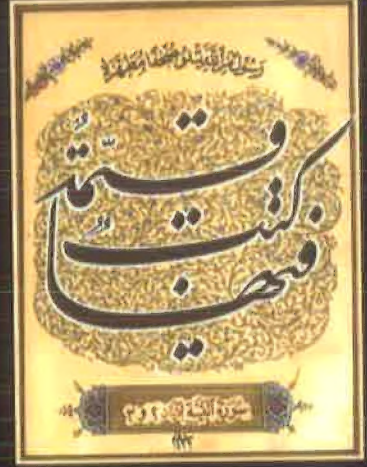 رسول من الله يتلو صحفا مطهرة
فيها كتب قيمة
سورة البينة آية ٢ و ٣